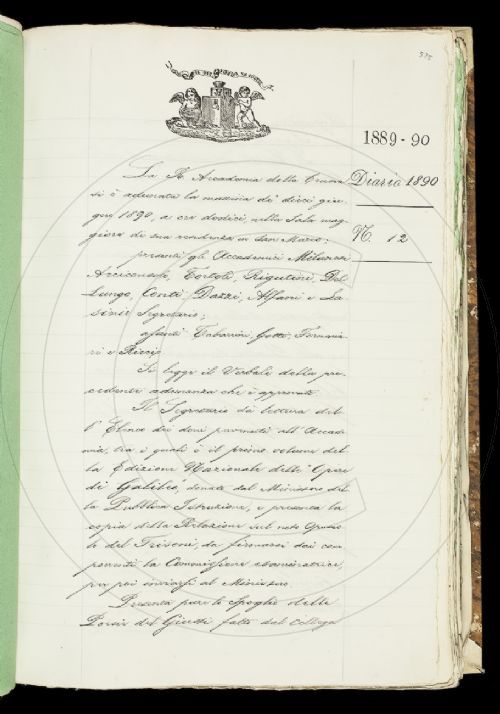 575
1889-90
La R. Accademia della Crusca
Diario 1890
si è adunata la mattina de' dieci giu-
gno 1890, a ore dodici, nella Sala mag-
N. 12
giore di sua residenza in San Marco;
presenti gli Accademici Milanesi
Arciconsolo, Tortoli, Rigutini, Del
Lungo, Conti, Dazzi, Alfani e La-
sinio Segretario;
assenti Tabarrini, Gotti, Ferrari
ri e Ricci
Si legge il Verbale della pre-
cedente adunanza che è approvato.
Il Segretario dà lettura del-
l'Elenco dei doni pervenuti all'Accade-
mia, tra i quali è il primo volume del-
la Edizione Nazionale delle Opere
di Galileo, donato dal Ministero del-
la Pubblica Istruzione, e presenta la
copia della Relazione sul noto
del Trissoni, da firmarsi dai com-
ponenti la Commissione esaminatrice,
per poi inviarsi al Ministero.
Presenta pure lo Spoglio delle
Poesie del Giusti fatto dal Collega